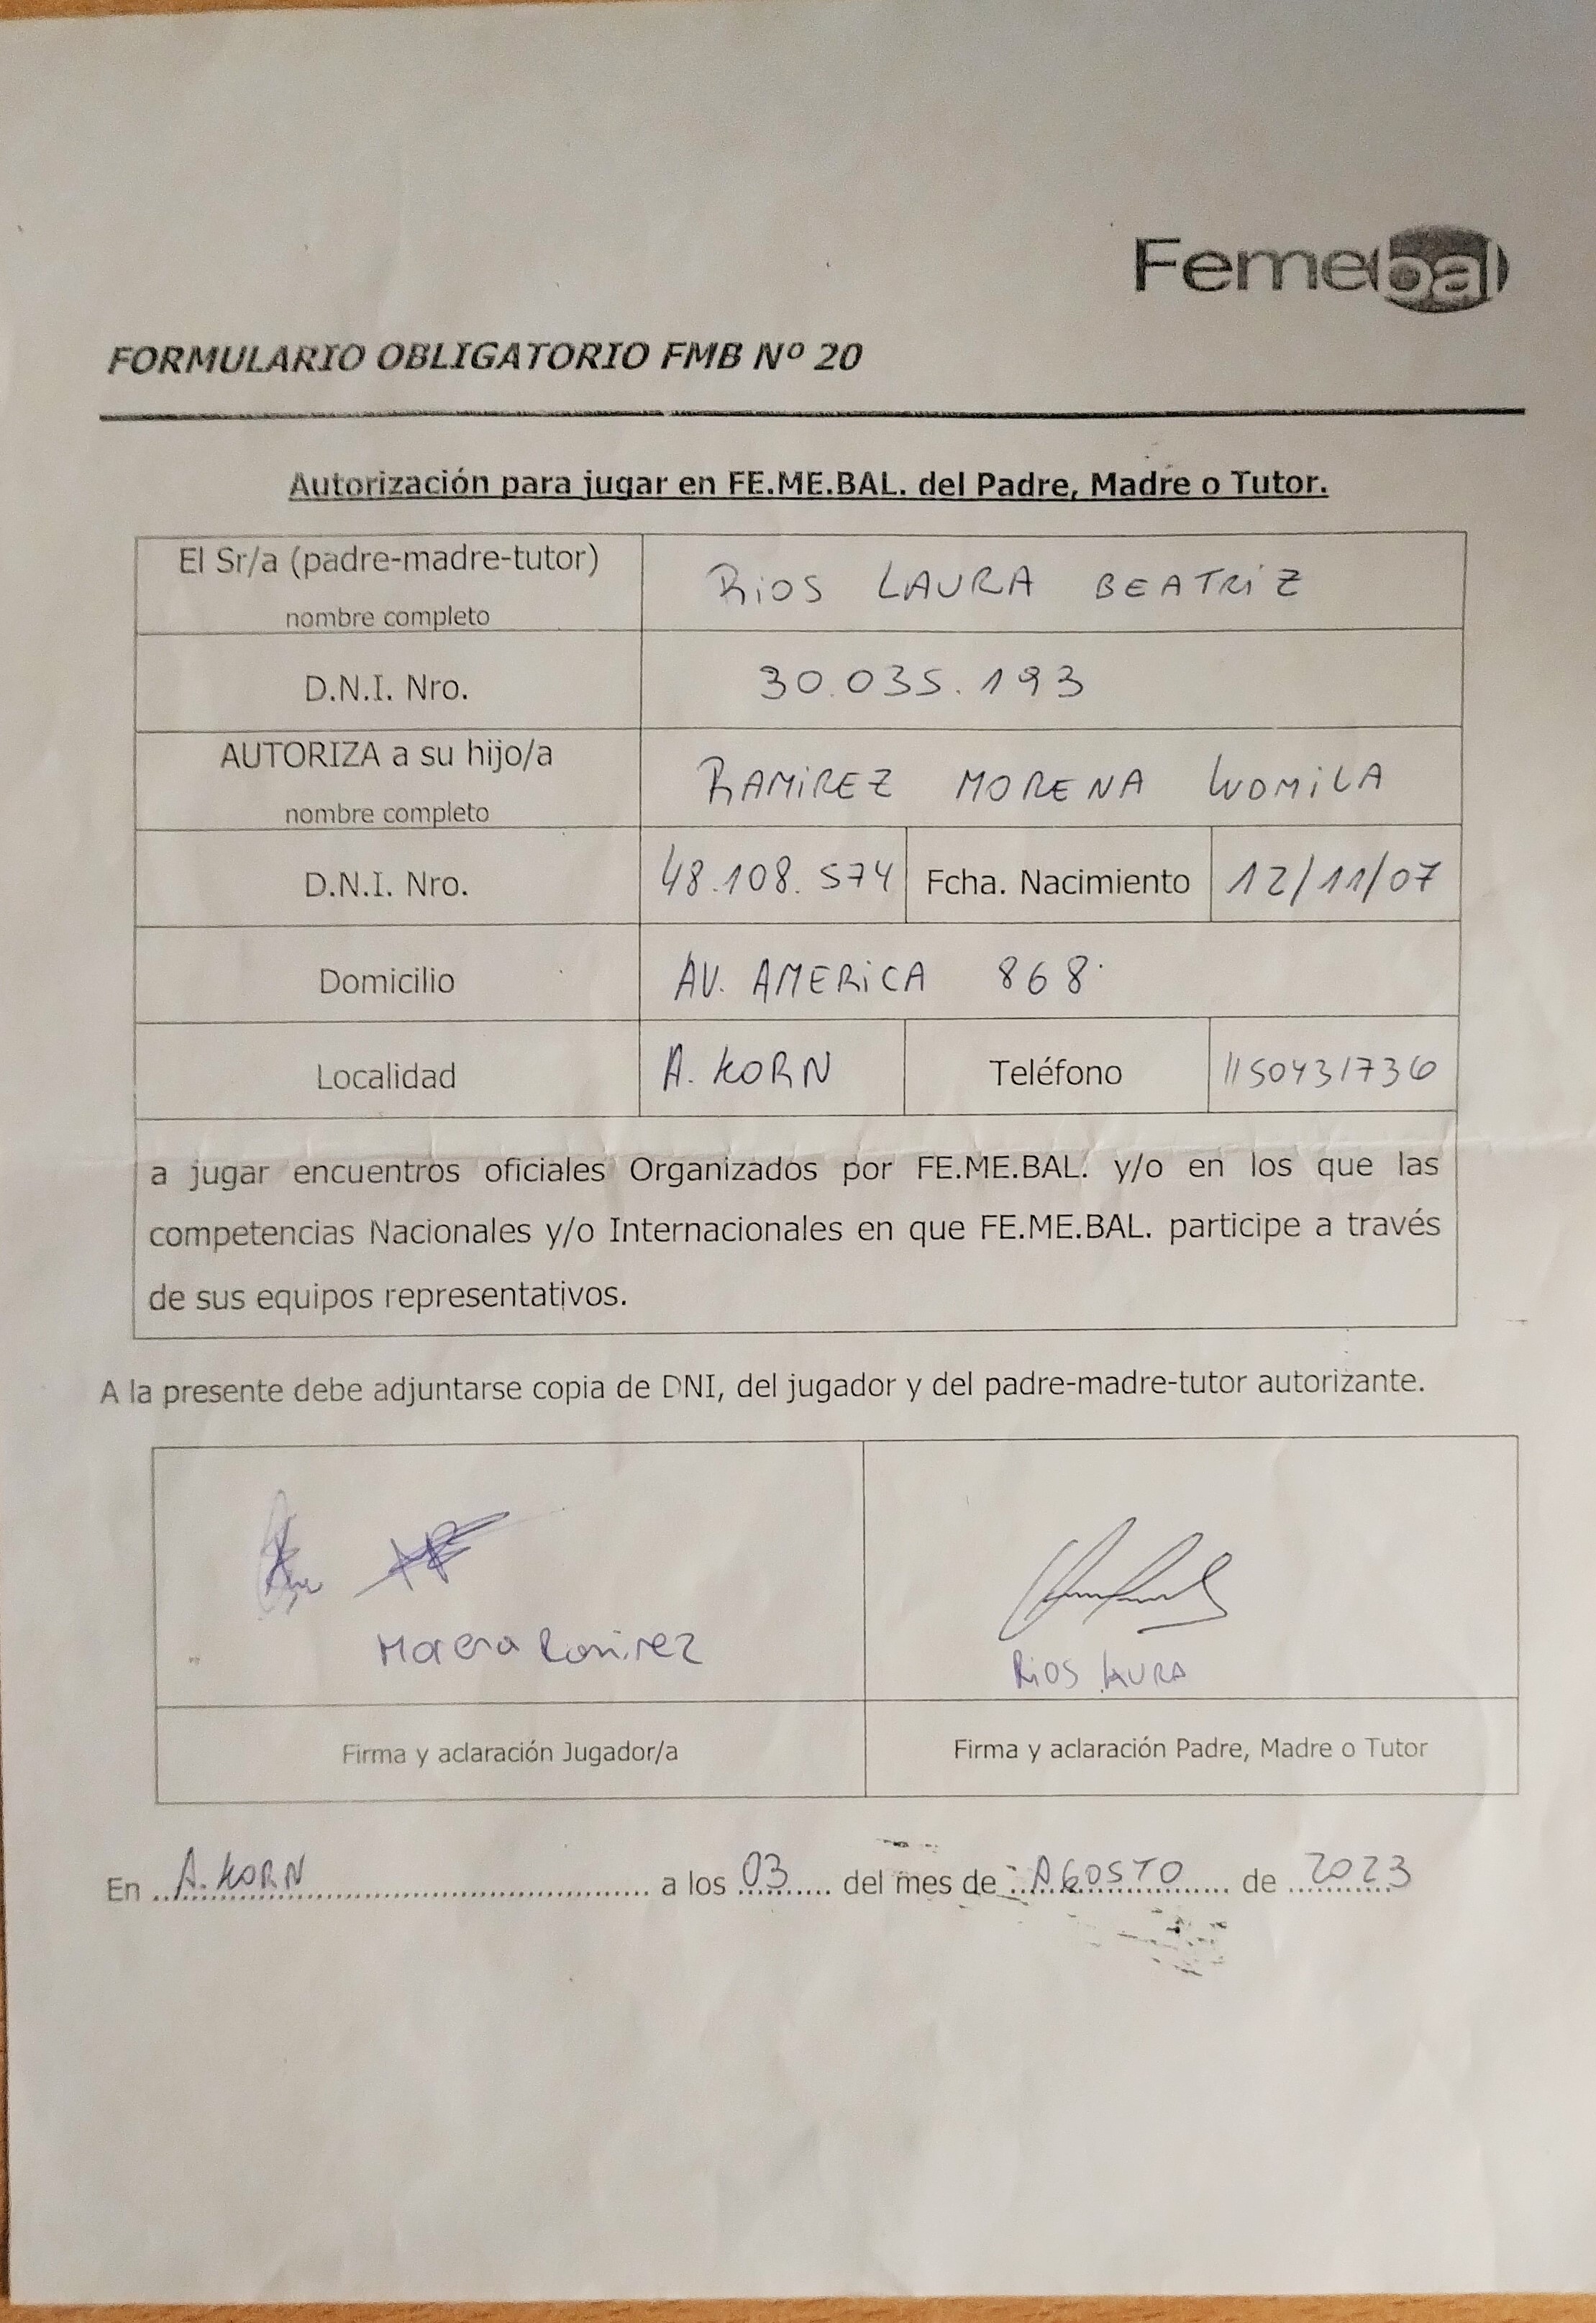 Femebal
FORMULARIO OBLIGATORIO FMB Nº 20
Autorización para jugar en FE.ME.BAL. del Padre, Madre o Tutor.
El Sr/a (padre-madre-tutor)
nombre completo
RiOS LAURA BEATRiZ
D.N.I. Nro.
30.035.193
AUTORIZA a su hijo/a
nombre completo
RAMiREZ MORENA LUDMiLA
D.N.I. Nro.
48.108.574
Fcha. Nacimiento
12/11/07
Domicilio
AV. AMERiCA 868
Localidad
A. KORN
Teléfono
1150431736
a jugar encuentros oficiales Organizados por FE.ME.BAL. y/o en los que las
competencias Nacionales y/o Internacionales en que FE.ME.BAL. participe a través
de sus equipos representativos.
A la presente debe adjuntarse copia de DNI, del jugador y del padre-madre-tutor autorizante.
Morena Ramirez
RiOS LAURA
Firma y aclaración Jugador/a
Firma y aclaración Padre, Madre o Tutor
En A. KORN a los 03 del mes de AGOSTO de 2023